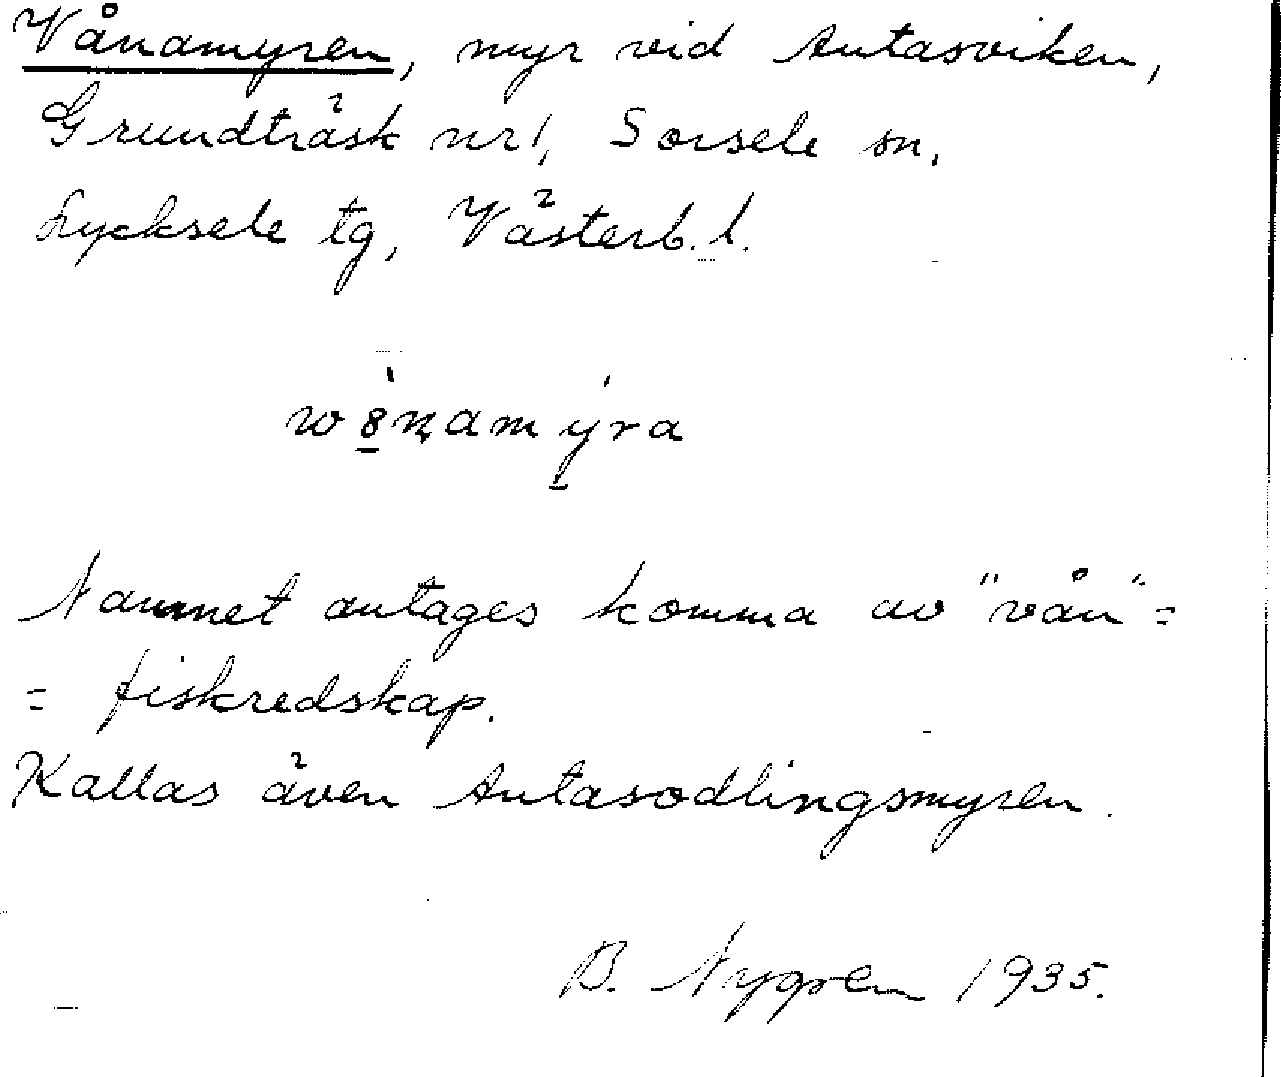 Vånamyren, myr vid Autasviken,
Grundträsk nr 1, Sorsele sn,
Lycksele tg, Västerb. l.
w8̱̀namýra
Namnet antages komma av "vån" =
= fiskredskap.
Kallas även Autasodlingsmyren.
B. Nygren 1935.